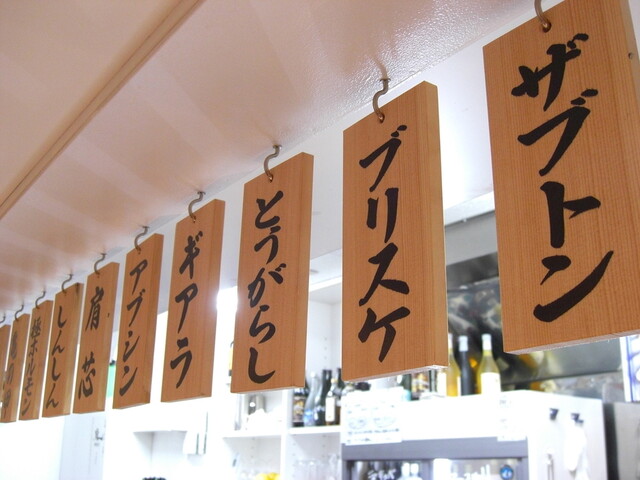 ザブトン
ブリスケ
とうがらし
ギアラ
アブシン
肩芯
しんしん